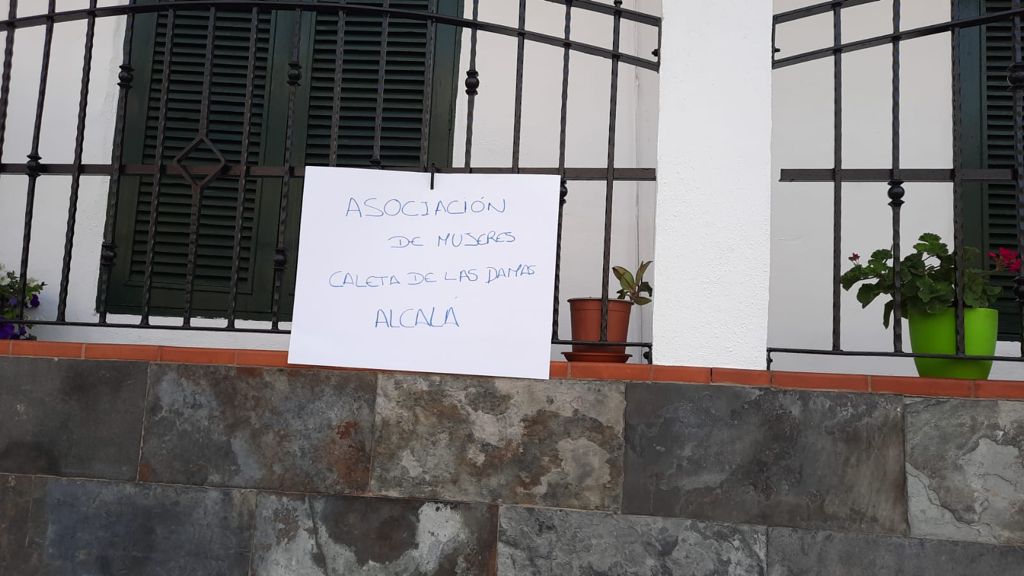 ASOCIACIÓN
DE MUJERES
CALETA DE LAS DAMAS
ALCALÁ